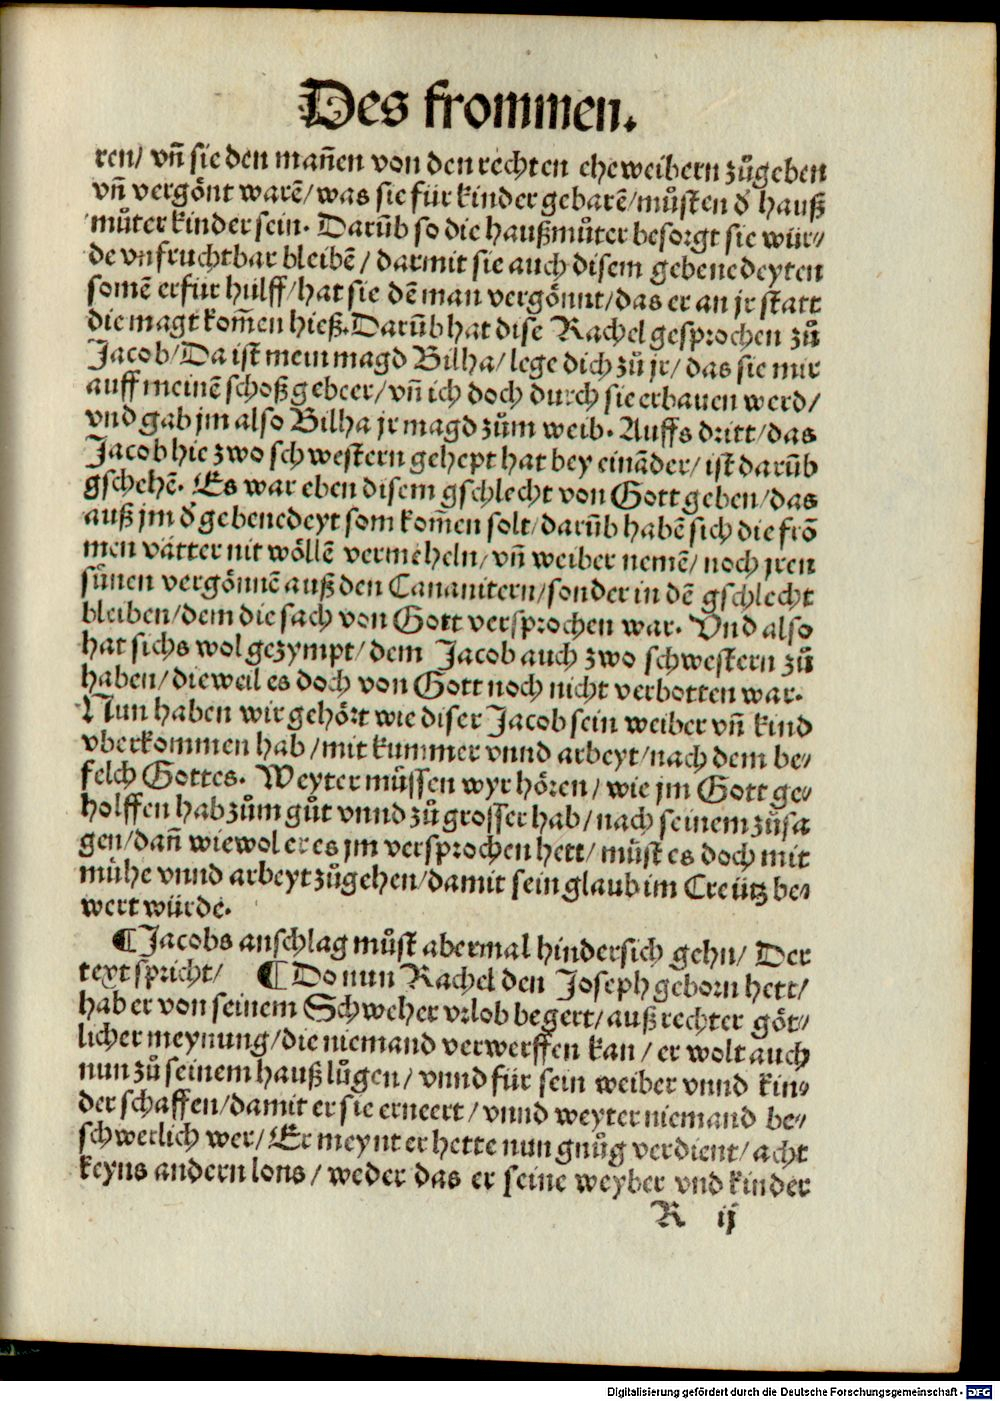 Des frommen.
ren/ vñ sie den mañen von den rechten eheweibern zůgeben
vñ vergönt warē/ was sie für kinder gebarē/ můsten d' hauß
můter kinder sein. Darūb so die haußmůter besorgt sie wür⸗
de vnfruchtbar bleibē/ darmit sie auch disem gebenedeyten
somē erfür hulff/ hat sie dē man vergönnt/ das er an jr statt
die magt kom̄en hieß. Darūb hat dise Rachel gesprochen zů
Jacob/ Da ist mein magd Bilha/ lege dich zů jr/ das sie mir
auff meinē schoß gebeer/ vñ ich doch durch sie erbauen werd/
vnd gab jm also Bilha jr magd zům weib. Auffs dritt/ das
Jacob hie zwo schwestern gehept hat bey eināder/ ist darūb
gschehē. Es war eben disem gschlecht von Gott geben/ das
auß jm d' gebenedeyt som kom̄en solt/ darūb habē sich die frō
men vätter nit wöllē vermeheln/ vñ weiber nemē/ noch jren
sünen vergönnē auß den Cananitern/ sonder in dē gschlecht
bleiben/ dem die sach von Gott versprochen war. Vnd also
hat sichs wol gezympt/ dem Jacob auch zwo schwestern zů
haben/ dieweil es doch von Gott noch nicht verbotten war.
Nun haben wir gehört wie diser Jacob sein weiber vñ kind
vberkommen hab/ mit kummer vnnd arbeyt/ nach dem be⸗
felch Gottes. Weyter müssen wyr hören/ wie jm Gott ge⸗
holffen hab zům gůt vnnd zů grosser hab/ nach seinem zůsa
gen/ dañ wiewol er es jm versprochen hett/ můst es doch mit
mühe vnnd arbeyt zůgehen/ damit sein glaub im Creütz be⸗
wert würde.
¶ Jacobs anschlag můst abermal hindersich gehn/ Der
text spricht/ ¶ Do nun Rachel den Joseph geborn hett/
hab er von seinem Schweher vrlob begert/ auß rechter göt⸗
licher meynung/ die niemand verwerffen kan/ er wolt auch
nun zů seinem hauß lůgen/ vnnd für sein weiber vnnd kin⸗
der schaffen/ damit er sie erneert/ vnnd weyter niemand be⸗
schwerlich wer/ Er meynt er hette nun gnůg verdient/ acht
keyns andern lons/ weder das er seine weyber vnd kinder
R ij
Digitalisierung gefördert durch die Deutsche Forschungsgemeinschaft - DFG